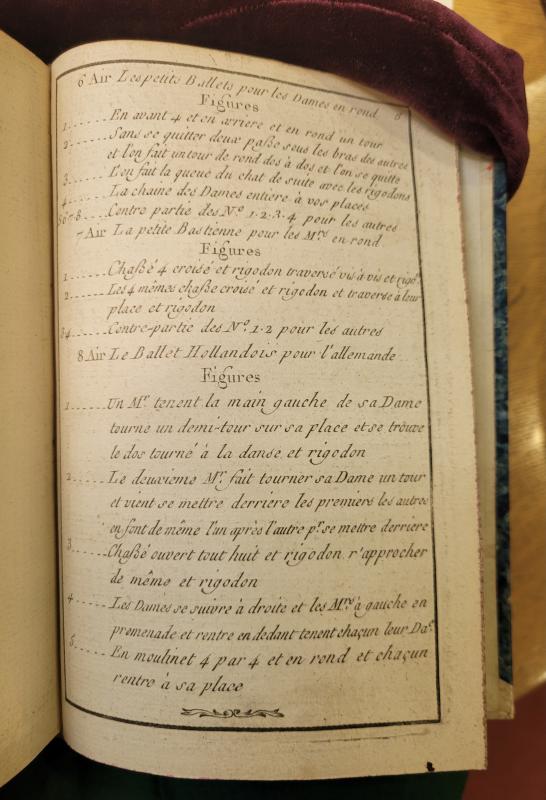 6e Air Les petits Ballets pour les Dames en rond 6
Figures
1......En avant 4 et en arriere et en rond un tour
2......Sans se quitter deux paße sous les bras des autres
et l'on fait un tour de rond dos à dos et l'on se quitte
3......L'on fait la queuë du chat de suite avec les rigodons
4......La chaine des Dames entiere à vos places
5 6-7-8...Contre partie des No. 1·2·3·4 pour les autres
7 Air La petite Bastienne pour les Mrs en rond
Figures
1......Chaßé 4 croisé et rigodon traversé vis à vis et rigon
2......Les 4 mêmes chaße croisé et rigodon et traverse à leur
place et rigodon
3 4......Contre-partie des No. 1·2 pour les autres
8 Air Le Ballet Hollandois pour l'allemande
Figures
1......Un Mr. tenent la main gauche de sa Dame
tourne un demi-tour sur sa place et se trouve
le dos tourné à la danse et rigodon
2......Le deuxieme Mr. fait tourner sa Dame un tour
et vient se mettre derriere les premiers les autres
en font de même l'un après l'autre pr. se mettre derriere
3......Chaßé ouvert tout huit et rigodon r'approcher
de même et rigodon
4......Les Dames se suivre à droite et les Mrs à gauche en
promenade et rentre en dedant tenent chaçun leur Dae.
5......En moulinet 4 par 4 et en rond et chaçun
rentre à sa place